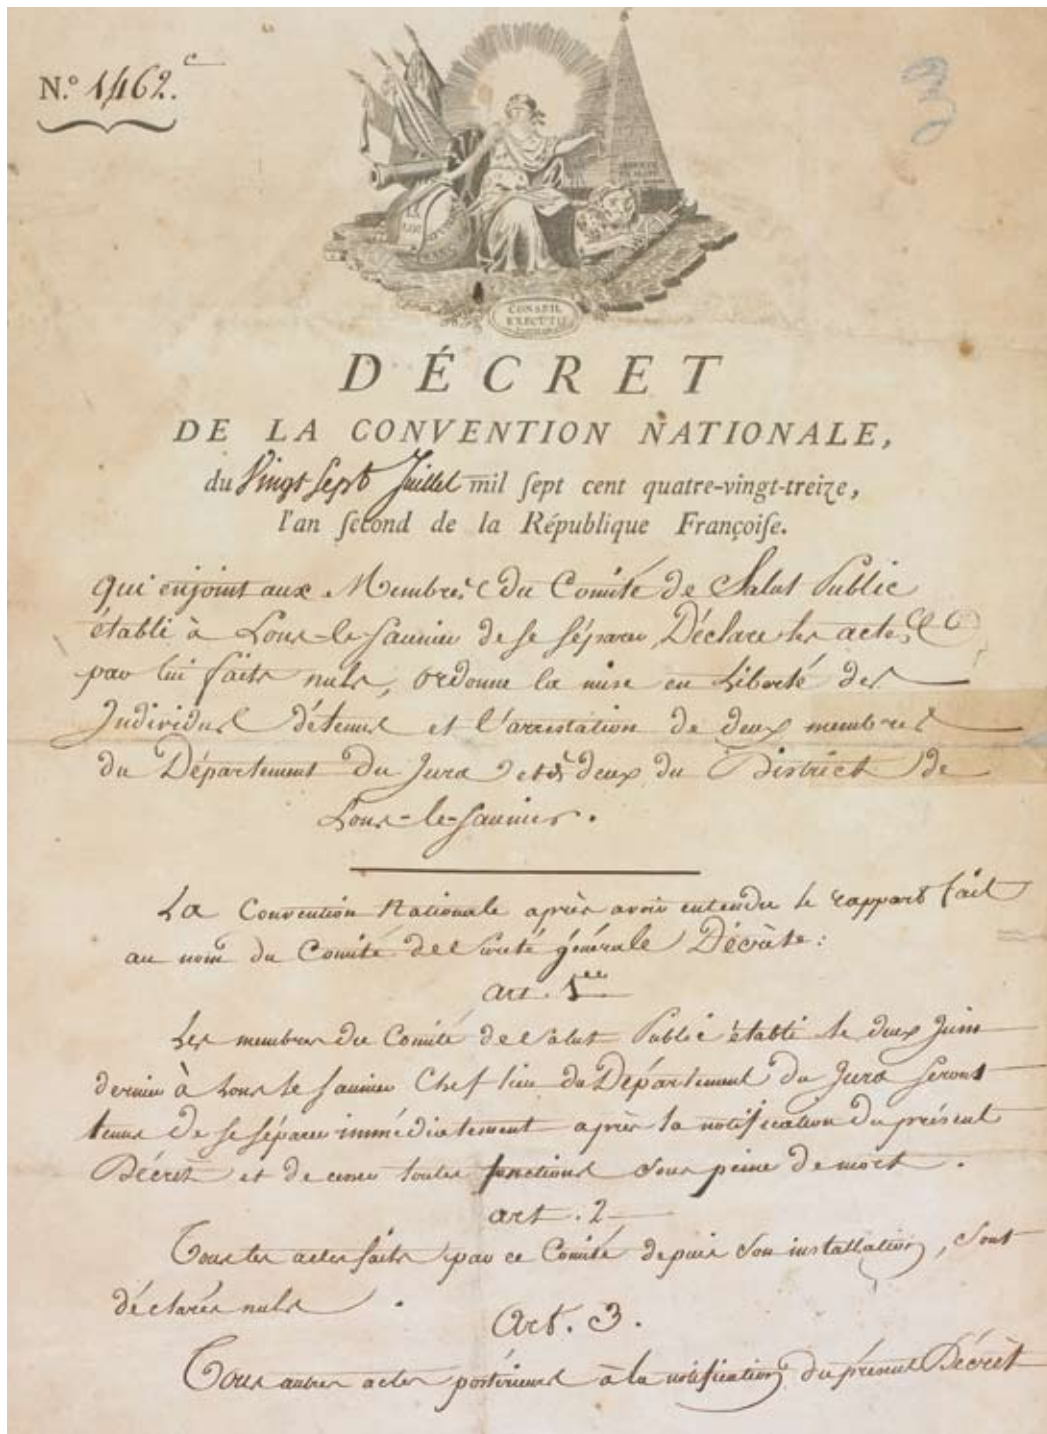 N.º 1462.e
3
CONSEIL
EXECUTIF
DÉCRET
DE LA CONVENTION NATIONALE,
du Vingt Sept Juillet mil ſept cent quatre-vingt-treize,
l'an ſecond de la République Françoiſe.
qui enjoint aux Membres du Comité de Salut Public
établi à Lons-le-Saunier de se séparer, Déclare les actes
par lui faits nuls, ordonne la mise en Liberté des
Individus détenus et l'arrestation de deux membres
du Département du Jura et de deux du District de
Lons-le-Saunier.
La Convention Nationale après avoir entendu le rapport fait
au nom du Comité de Sureté générale Décrète :
art. 1er
Les membres du Comité de Salut Public établi le deux Juin
dernier à Lons le Saunier Chef lieu du Département du Jura seront
tenus de se séparer immédiatement après la notification du présent
Décret et de cesser toutes fonctions sous peine de mort.
art. 2
Tous les actes faits par ce Comité depuis son installation, sont
déclarés nuls.
Art. 3.
Tous autres actes postérieurs à la notification du présent Décrèt